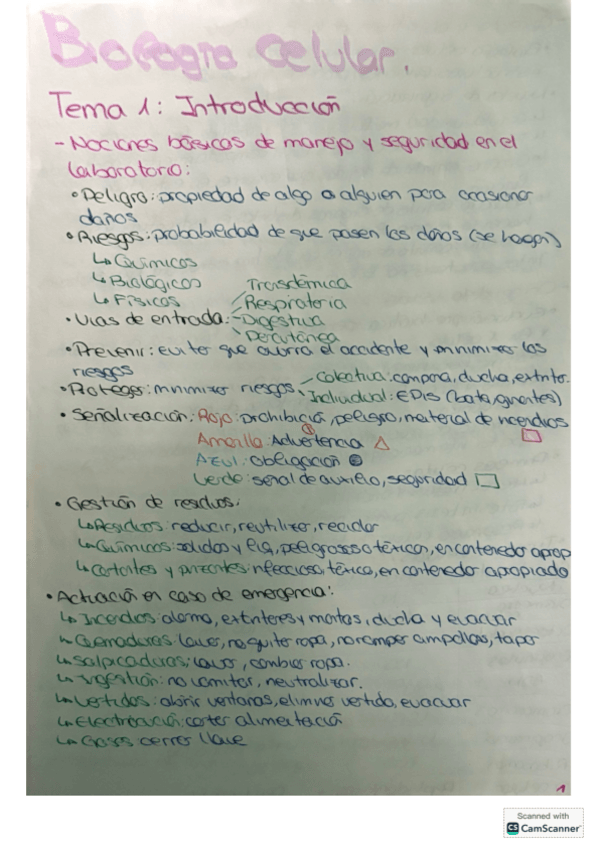 Biología celular.
Tema 1: Introducción
- Nociones básicas de manejo y seguridad en el
laboratorio:
• Peligro: propiedad de algo o alguien para ocasionar
daños
• Riesgos: probabilidad de que pasen los daños (se hagan)
↳ Químicos
↳ Biológicos
↳ Físicos
• Vías de entrada: Transdérmica
Respiratoria
Digestiva
Percutánea
• Prevenir: evitar que ocurra el accidente y minimizar los
riesgos
• Proteger: minimizar riesgos Colectiva: campana, ducha, extinto.
Individual: EPIs (bata, guantes)
• Señalización: Rojo: prohibición, peligro, material de incendios
Amarillo: Advertencia
Azul: obligación
Verde: señal de auxilio, seguridad
• Gestión de residuos:
↳ Residuos: reducir, reutilizar, reciclar
↳ Químicos: sólidos y líq, peligrosos o tóxicos, en contenedor aprop
↳ Cortantes y punzantes: infeccioso, tóxico, en contenedor apropiado
• Actuación en caso de emergencia:
↳ Incendios: alarma, extintores y mantas, ducha y evacuar
↳ Quemaduras: lavar, no quitar ropa, no romper ampollas, tapar
↳ Salpicaduras: lavar, cambiar ropa.
↳ Ingestión: no vomitar, neutralizar.
↳ Vertidos: abrir ventanas, eliminar vertido, evacuar
↳ Electrocución: cortar alimentación
↳ Gases: cerrar llave
1
Scanned with
CS CamScanner